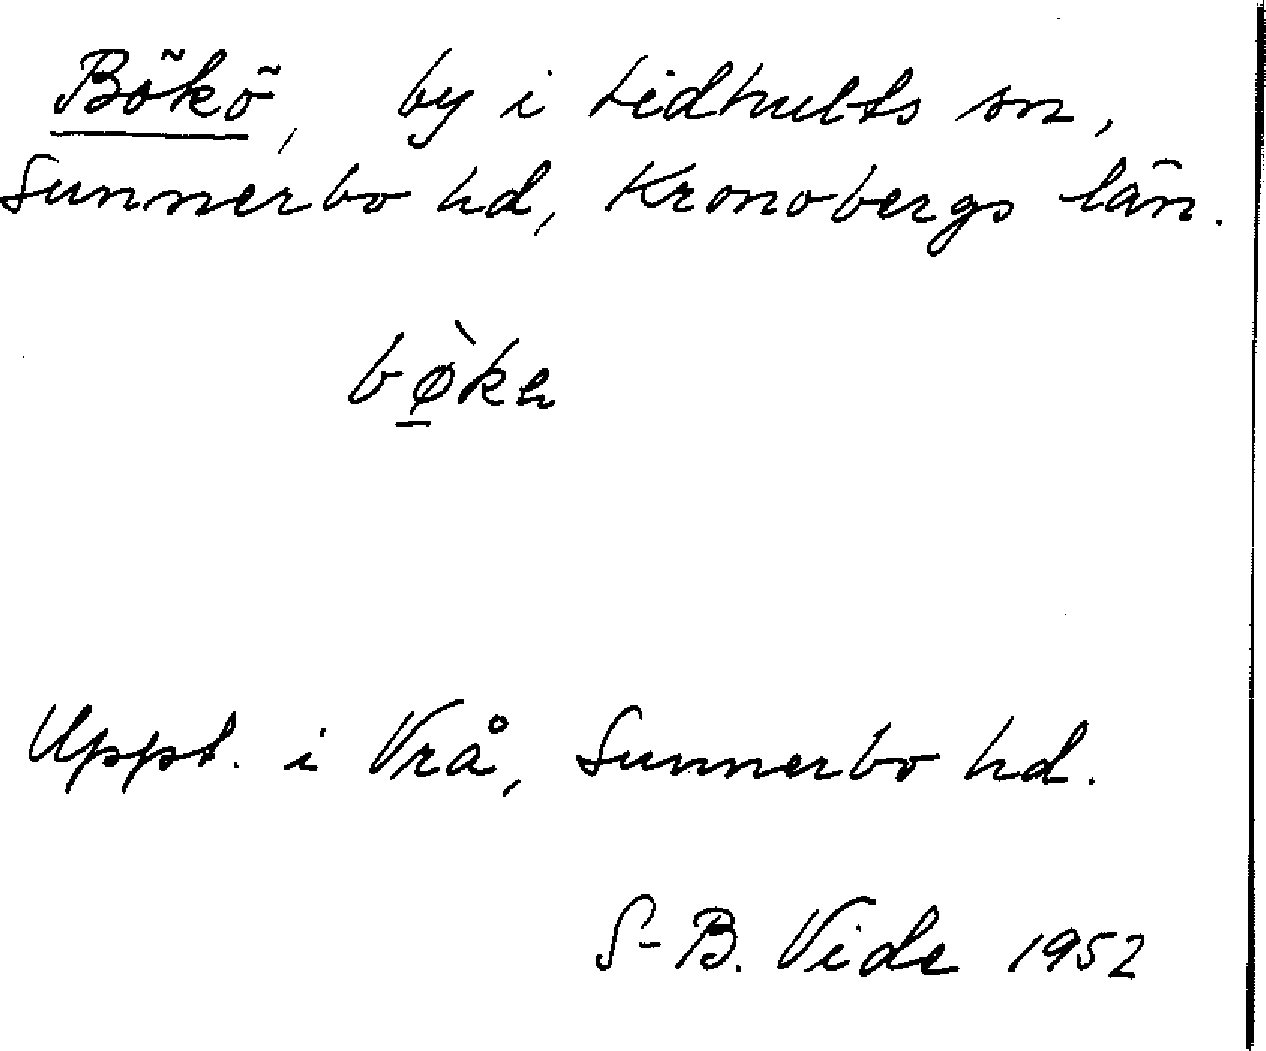 Bökö, by i Lidhults sn,
Sunnerbo hd, Kronobergs län.
bø̱̀ka
Uppt. i Vrå, Sunnerbo hd.
S-B. Vide 1952